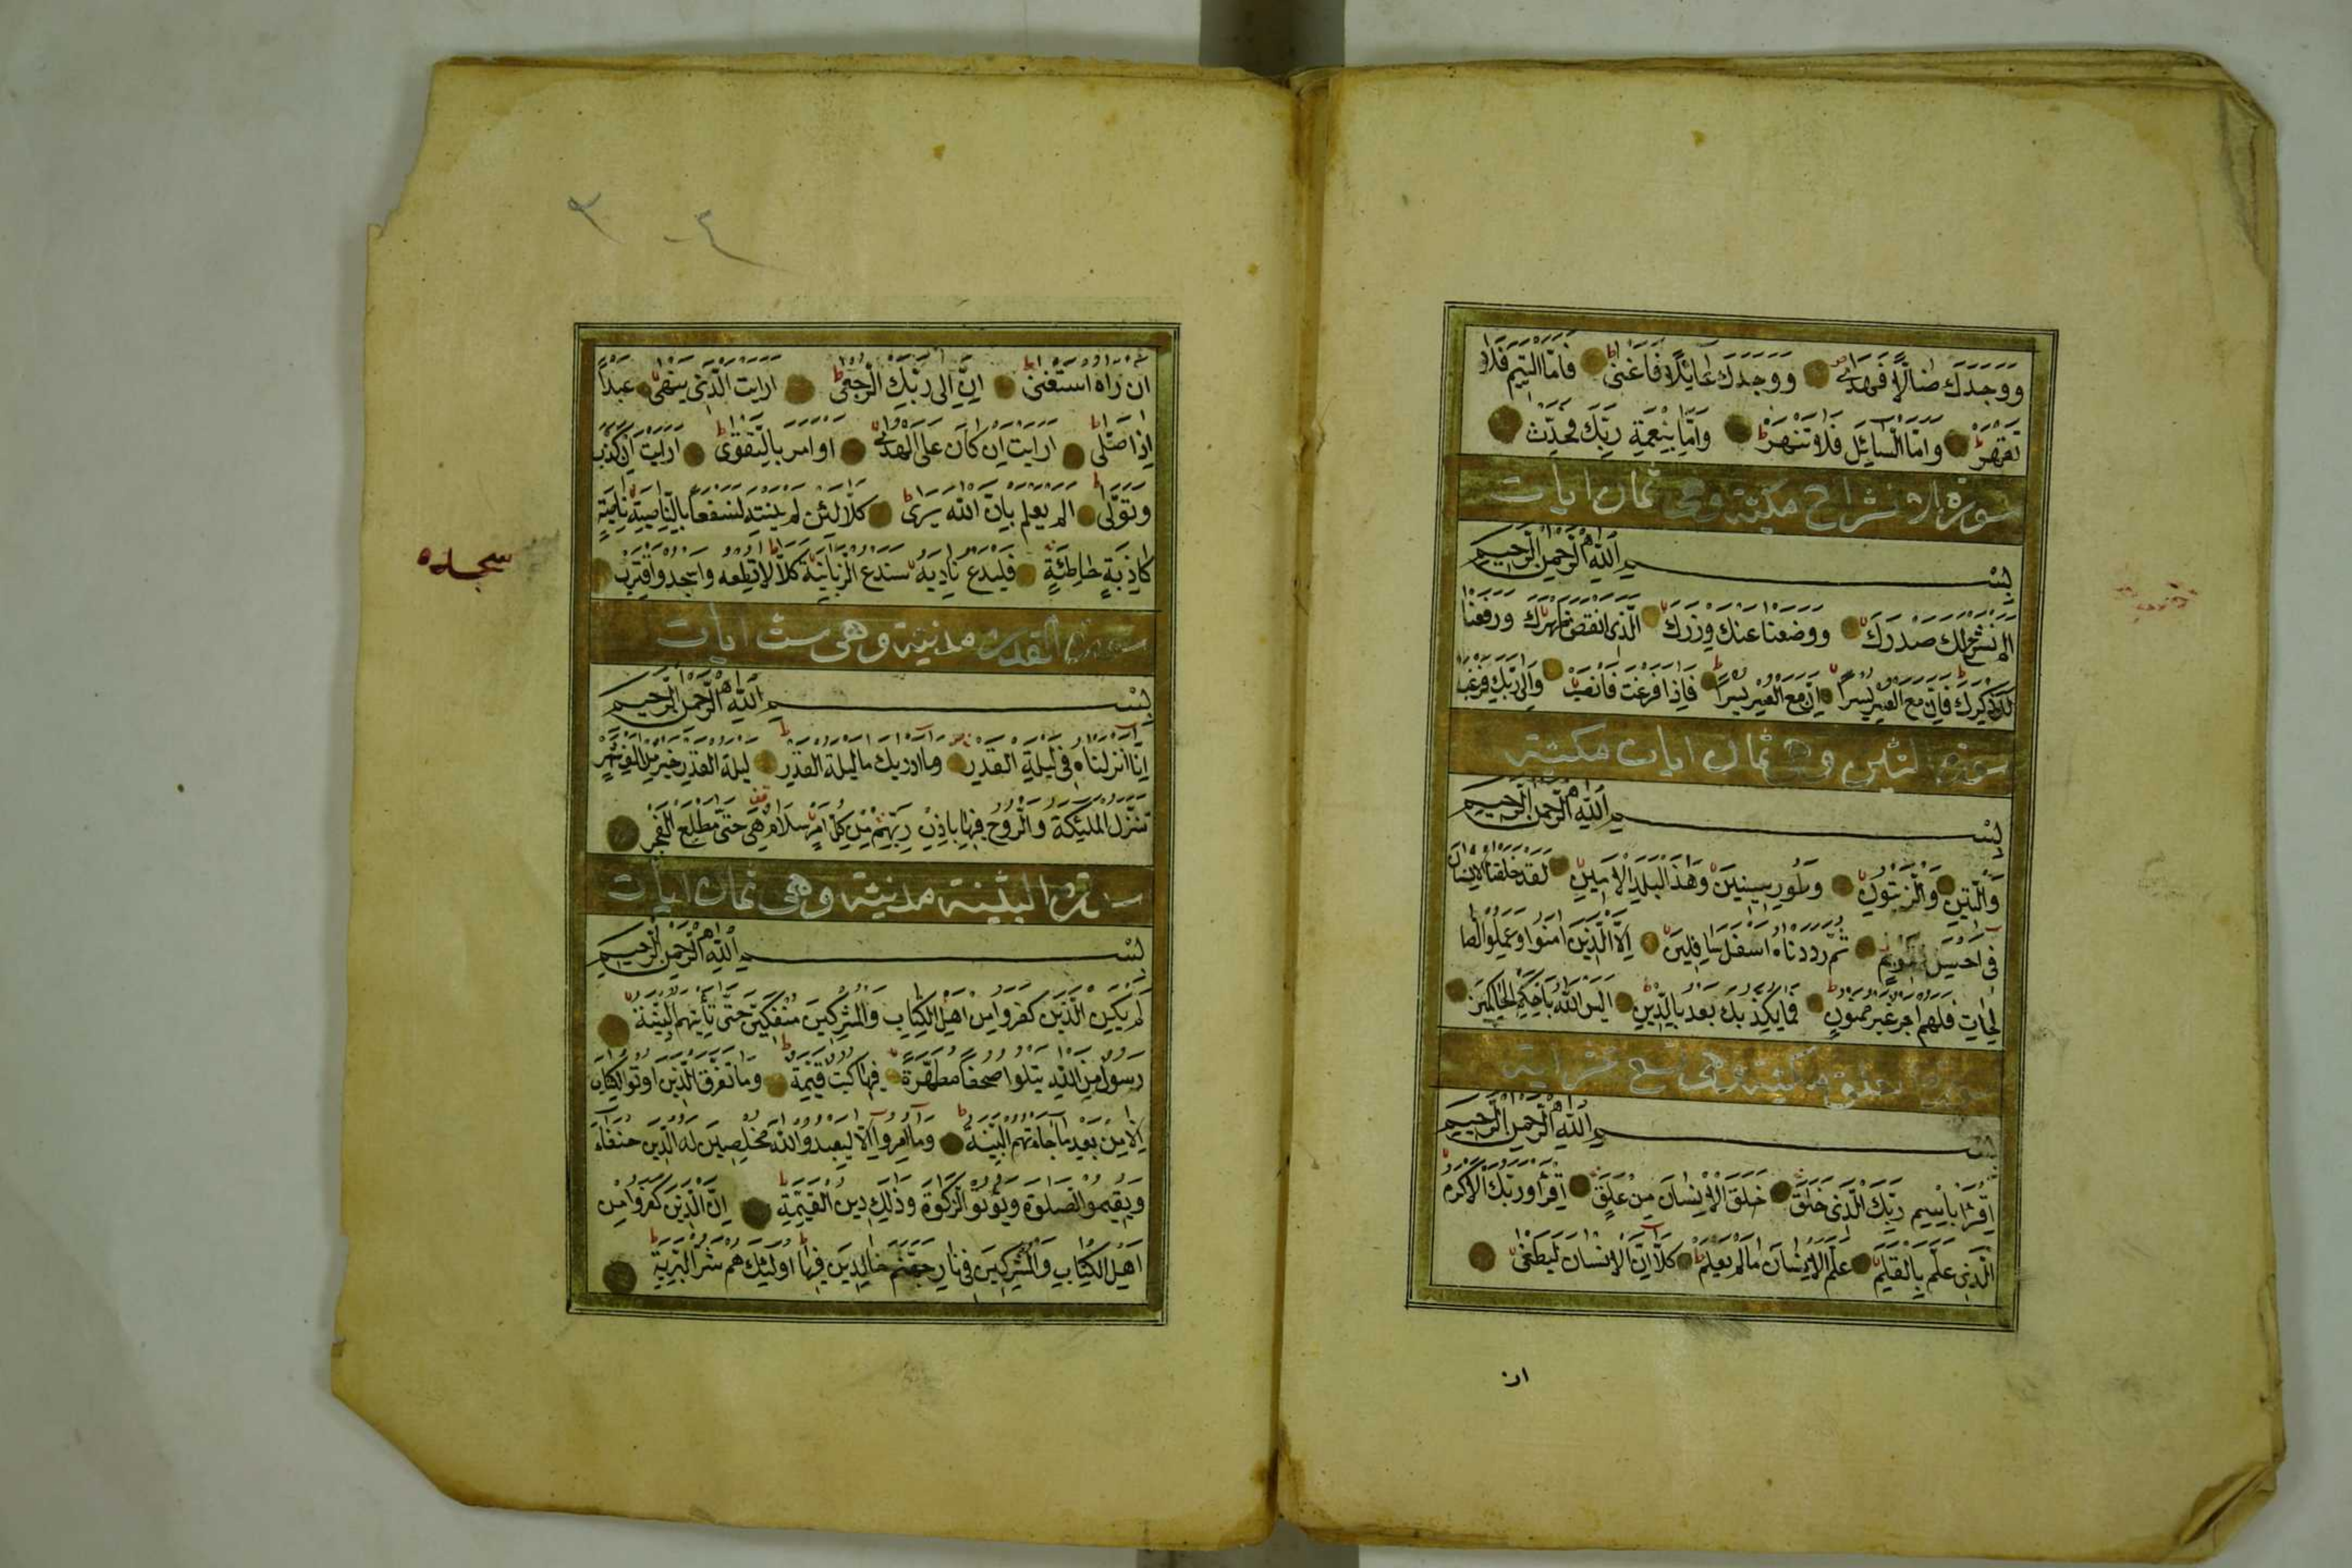 وَوَجَدَكَ ضَالًّا فَهَدَى وَوَجَدَكَ عَائِلًا فَاَغْنَى فَاَمَّا الْيَتِيمَ فَلَا
تَقْهَرْ وَاَمَّا السَّائِلَ فَلَا تَنْهَرْ وَاَمَّا بِنِعْمَةِ رَبِّكَ فَحَدِّثْ
سورة الانشراح مكية وهى ثمان ايات
بِسْمِ اللّٰهِ الرَّحْمٰنِ الرَّحِيمِ
اَلَمْ نَشْرَحْ لَكَ صَدْرَكَ وَوَضَعْنَا عَنْكَ وِزْرَكَ الَّذِى اَنْقَضَ ظَهْرَكَ وَرَفَعْنَا
لَكَ ذِكْرَكَ فَاِنَّ مَعَ الْعُسْرِ يُسْرًا اِنَّ مَعَ الْعُسْرِ يُسْرًا فَاِذَا فَرَغْتَ فَانْصَبْ وَاِلَى رَبِّكَ فَارْغَبْ
سورة التين وهى ثمان ايات مكية
بِسْمِ اللّٰهِ الرَّحْمٰنِ الرَّحِيمِ
وَالتِّينِ وَالزَّيْتُونِ وَطُورِ سِينِينَ وَهَذَا الْبَلَدِ الْاَمِينِ لَقَدْ خَلَقْنَا الْاِنْسَانَ
فِى اَحْسَنِ تَقْوِيمٍ ثُمَّ رَدَدْنَاهُ اَسْفَلَ سَافِلِينَ اِلَّا الَّذِينَ اٰمَنُوا وَعَمِلُوا الصَّا
لِحَاتِ فَلَهُمْ اَجْرٌ غَيْرُ مَمْنُونٍ فَمَا يُكَذِّبُكَ بَعْدُ بِالدِّينِ اَلَيْسَ اللّٰهُ بِاَحْكَمِ الْحَاكِمِينَ
مكية وهى تسع عشر اية
بِسْمِ اللّٰهِ الرَّحْمٰنِ الرَّحِيمِ
اِقْرَأْ بِاسْمِ رَبِّكَ الَّذِى خَلَقَ خَلَقَ الْاِنْسَانَ مِنْ عَلَقٍ اِقْرَأْ وَرَبُّكَ الْاَكْرَمُ
الَّذِى عَلَّمَ بِالْقَلَمِ عَلَّمَ الْاِنْسَانَ مَا لَمْ يَعْلَمْ كَلَّا اِنَّ الْاِنْسَانَ لَيَطْغَى
ان
اَنْ رَاٰهُ اسْتَغْنَى اِنَّ اِلَى رَبِّكَ الرُّجْعَى اَرَاَيْتَ الَّذِى يَنْهَى عَبْدًا
اِذَا صَلَّى اَرَاَيْتَ اِنْ كَانَ عَلَى الْهُدَى اَوْ اَمَرَ بِالتَّقْوَى اَرَاَيْتَ اِنْ كَذَّبَ
وَتَوَلَّى اَلَمْ يَعْلَمْ بِاَنَّ اللّٰهَ يَرَى كَلَّا لَئِنْ لَمْ يَنْتَهِ لَنَسْفَعًا بِالنَّاصِيَةِ نَاصِيَةٍ
كَاذِبَةٍ خَاطِئَةٍ فَلْيَدْعُ نَادِيَهُ سَنَدْعُ الزَّبَانِيَةَ كَلَّا لَا تُطِعْهُ وَاسْجُدْ وَاقْتَرِبْ
سجده
سورة القدر مدنية وهى ست ايات
بِسْمِ اللّٰهِ الرَّحْمٰنِ الرَّحِيمِ
اِنَّا اَنْزَلْنَاهُ فِى لَيْلَةِ الْقَدْرِ وَمَا اَدْرٰيكَ مَا لَيْلَةُ الْقَدْرِ لَيْلَةُ الْقَدْرِ خَيْرٌ مِنْ اَلْفِ شَهْرٍ
تَنَزَّلُ الْمَلٰئِكَةُ وَالرُّوحُ فِيهَا بِاِذْنِ رَبِّهِمْ مِنْ كُلِّ اَمْرٍ سَلَامٌ هِىَ حَتَّى مَطْلَعِ الْفَجْرِ
سورة البينة مدنية وهى ثمان ايات
بِسْمِ اللّٰهِ الرَّحْمٰنِ الرَّحِيمِ
لَمْ يَكُنِ الَّذِينَ كَفَرُوا مِنْ اَهْلِ الْكِتَابِ وَالْمُشْرِكِينَ مُنْفَكِّينَ حَتَّى تَأْتِيَهُمُ الْبَيِّنَةُ
رَسُولٌ مِنَ اللّٰهِ يَتْلُوا صُحُفًا مُطَهَّرَةً فِيهَا كُتُبٌ قَيِّمَةٌ وَمَا تَفَرَّقَ الَّذِينَ اُوتُوا الْكِتَابَ
اِلَّا مِنْ بَعْدِ مَا جَاءَتْهُمُ الْبَيِّنَةُ وَمَا اُمِرُوا اِلَّا لِيَعْبُدُوا اللّٰهَ مُخْلِصِينَ لَهُ الدِّينَ حُنَفَاءَ
وَيُقِيمُوا الصَّلٰوةَ وَيُؤْتُوا الزَّكٰوةَ وَذٰلِكَ دِينُ الْقَيِّمَةِ اِنَّ الَّذِينَ كَفَرُوا مِنْ
اَهْلِ الْكِتَابِ وَالْمُشْرِكِينَ فِى نَارِ جَهَنَّمَ خَالِدِينَ فِيهَا اُولٰئِكَ هُمْ شَرُّ الْبَرِيَّةِ